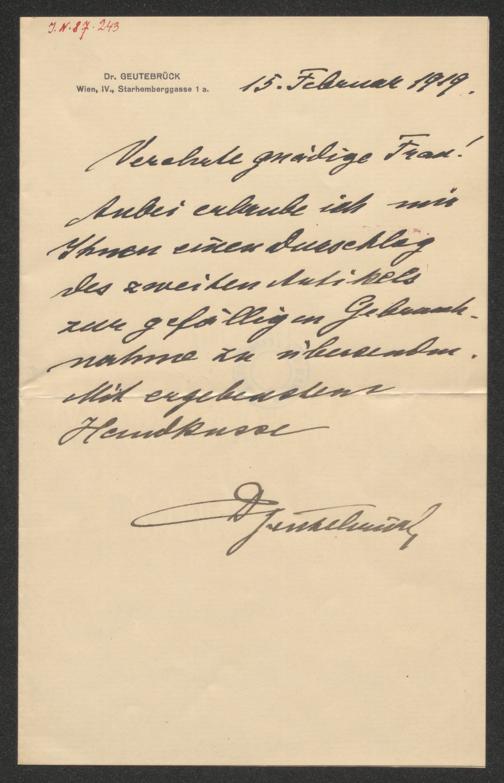 J.N. 87.243
Dr. GEUTEBRÜCK
Wien, IV., Starhemberggasse 1 a.
15. Februar 1919.
Verehrte gnädige Frau!
Anbei erlaube ich mir
Ihnen einen Durschlag
des zweiten Artikels
zur gefälligen Gebrauch-
nahme zu übersenden.
Mit ergebenstem
Handkusse
D Geutebrück